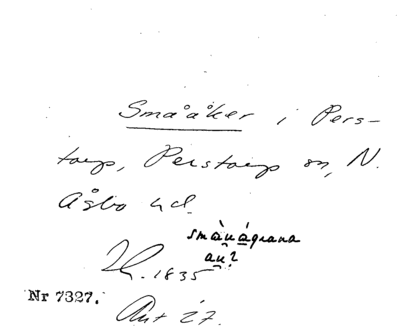 Smååker i Pers-
torp, Perstorp sn, N.
Åsbo hd.
småu̯ágrana
au̯?
Lh. 1835
Nr 7327.
Ant 27.